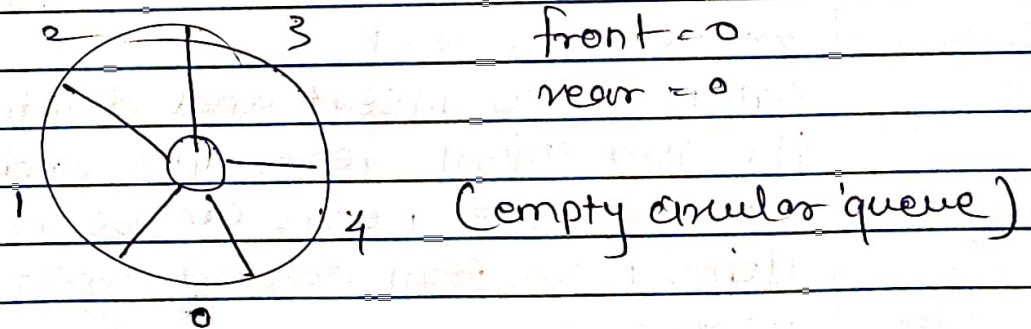 2 3 front = 0
rear = 0
1 4 (empty circular queue)
0